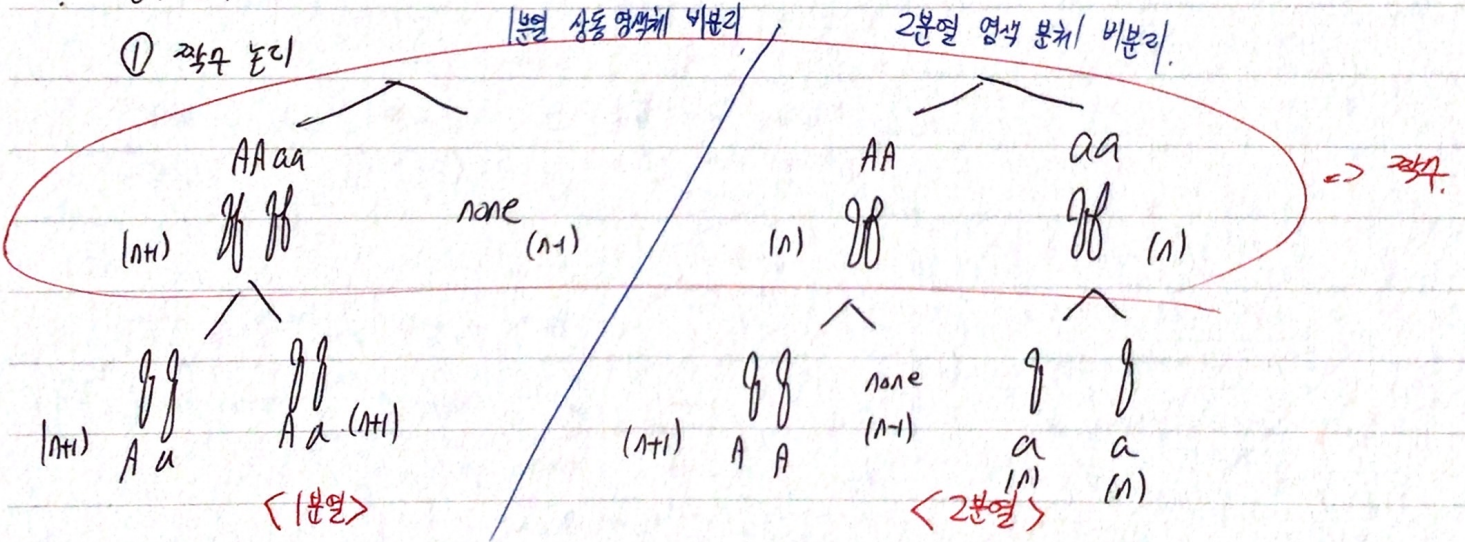 ① 짝수 논리
1분열 상동 염색체 비분리.
2분열 염색 분체 비분리.
AAaa
none
(n+1)
(n-1)
AA
aa
(n)
(n)
=> 짝수.
(n+1)
A a
A a (n+1)
<1분열>
none
(n+1)
(n-1)
A A
a
a
(n)
(n)
<2분열>